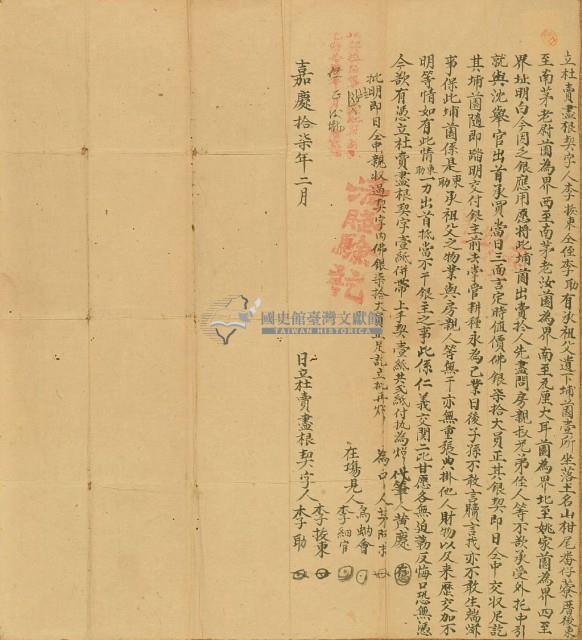 立杜賣盡根契字人李拔東仝侄李助有承祖父遺下埔菌壹所坐落土名山柑尾番仔藔厝後東
至南茅老尉菌為界西至南茅老汝菌為界南至瓦厘大耳菌為界北至姚家菌為界四至
界址明白今因乏銀應用應將此埔菌出賣於人先盡問房親叔兄弟侄人等不欲承受外托中引
就與沈 官出首承買當日三面言定時值價佛銀柒拾大員正其銀契即日仝中交收足訖
其埔菌隨即踏明交付銀主前去掌管耕種永為己業日後子孫不敢言贖言找亦不敢生端滋
事保此埔菌係是東助承祖父之物業與房親人等無干亦無重張典掛他人財物以及来歷交加不
明等情如有此情東助一力出首抵當不干銀主之事此係仁義交関二比甘愿各無迫勒反悔口恐無憑
今欲有憑立杜賣盡根契字壹紙併帶上手契壹紙共弍紙付执為炤 代筆人黃慶
批明即日仝中親收過契字內佛銀柒拾大員正足訖立批再炤 為中人
在塲見人 會
李細官
嘉慶拾柒年二月 日立杜賣盡根契字人李拔東
李助
驗訖
國史館臺灣文獻館
TAIWAN HISTORICA